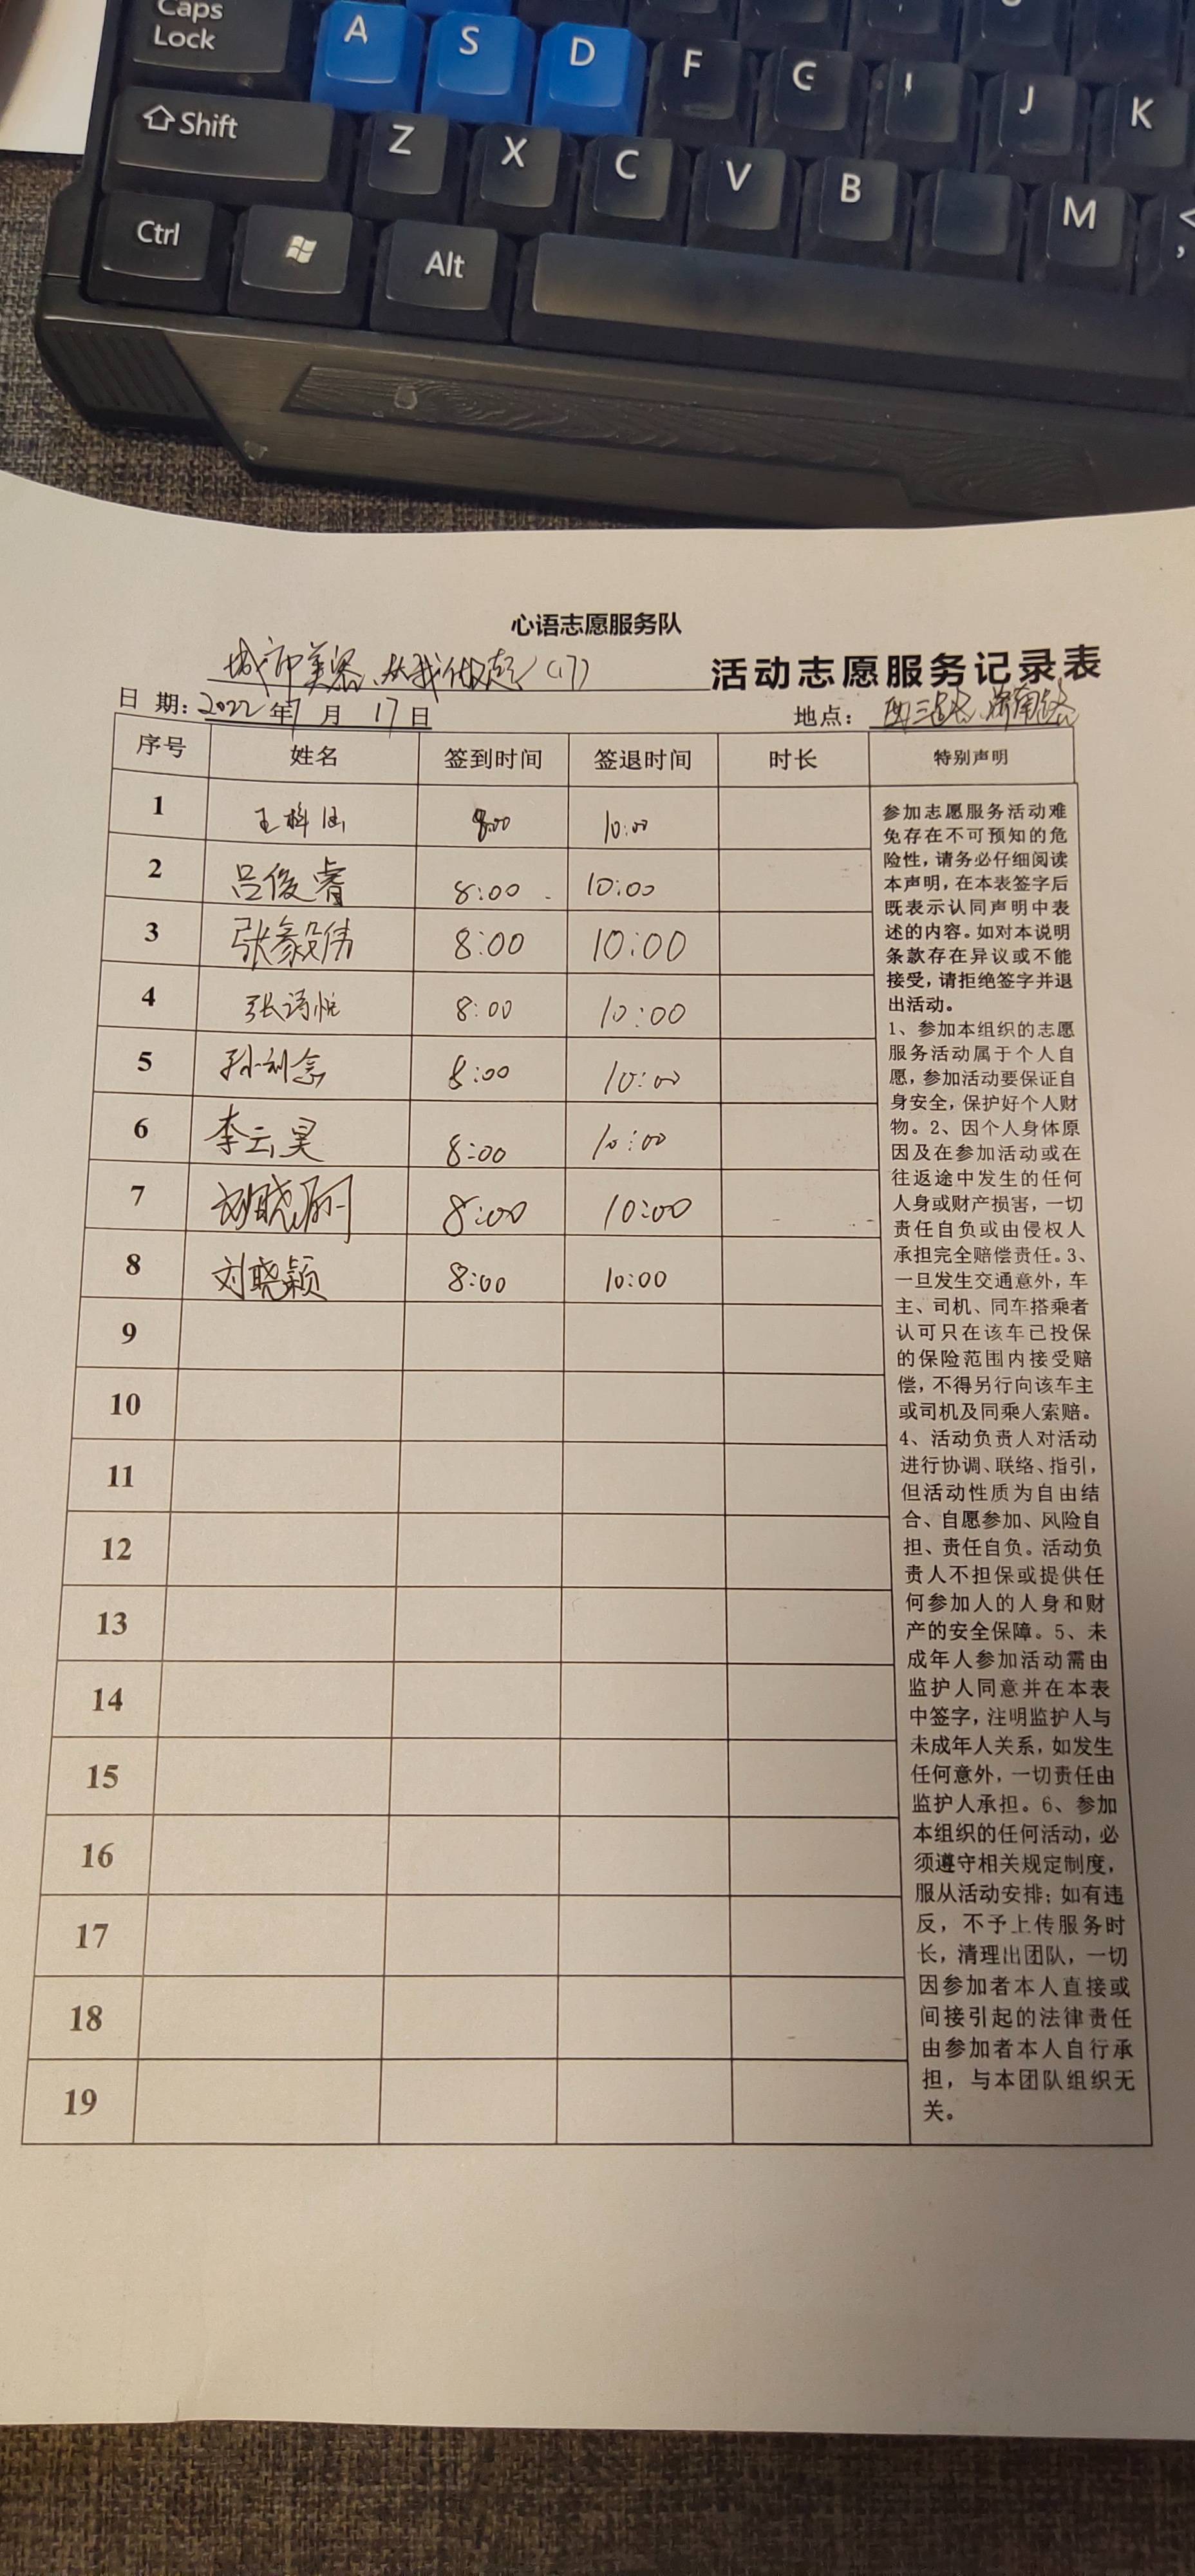 Caps
Lock
A S D F G J K
Shift Z X C V B M <
,
Ctrl Alt
心语志愿服务队
城市美容、从我做起(17) 活动志愿服务记录表
日 期: 2022年7月17日 地点:
序号 姓名 签到时间 签退时间 时长 特别声明
1 王梓涵 8:00 10:00
2 吕俊睿 8:00 10:00
3 张毅伟 8:00 10:00
4 张诗悦 8:00 10:00
5 孙刘念 8:00 10:00
6 李云昊 8:00 10:00
7 刘晓 8:00 10:00
8 刘晓颖 8:00 10:00
9
10
11
12
13
14
15
16
17
18
19
参加志愿服务活动难
免存在不可预知的危
险性,请务必仔细阅读
本声明,在本表签字后
既表示认同声明中表
述的内容。如对本说明
条款存在异议或不能
接受,请拒绝签字并退
出活动。
1、参加本组织的志愿
服务活动属于个人自
愿,参加活动要保证自
身安全,保护好个人财
物。2、因个人身体原
因及在参加活动或在
往返途中发生的任何
人身或财产损害,一切
责任自负或由侵权人
承担完全赔偿责任。3、
一旦发生交通意外,车
主、司机、同车搭乘者
认可只在该车已投保
的保险范围内接受赔
偿,不得另行向该车主
或司机及同乘人索赔。
4、活动负责人对活动
进行协调、联络、指引,
但活动性质为自由结
合、自愿参加、风险自
担、责任自负。活动负
责人不担保或提供任
何参加人的人身和财
产的安全保障。5、未
成年人参加活动需由
监护人同意并在本表
中签字,注明监护人与
未成年人关系,如发生
任何意外,一切责任由
监护人承担。6、参加
本组织的任何活动,必
须遵守相关规定制度,
服从活动安排;如有违
反,不予上传服务时
长,清理出团队,一切
因参加者本人直接或
间接引起的法律责任
由参加者本人自行承
担,与本团队组织无
关。